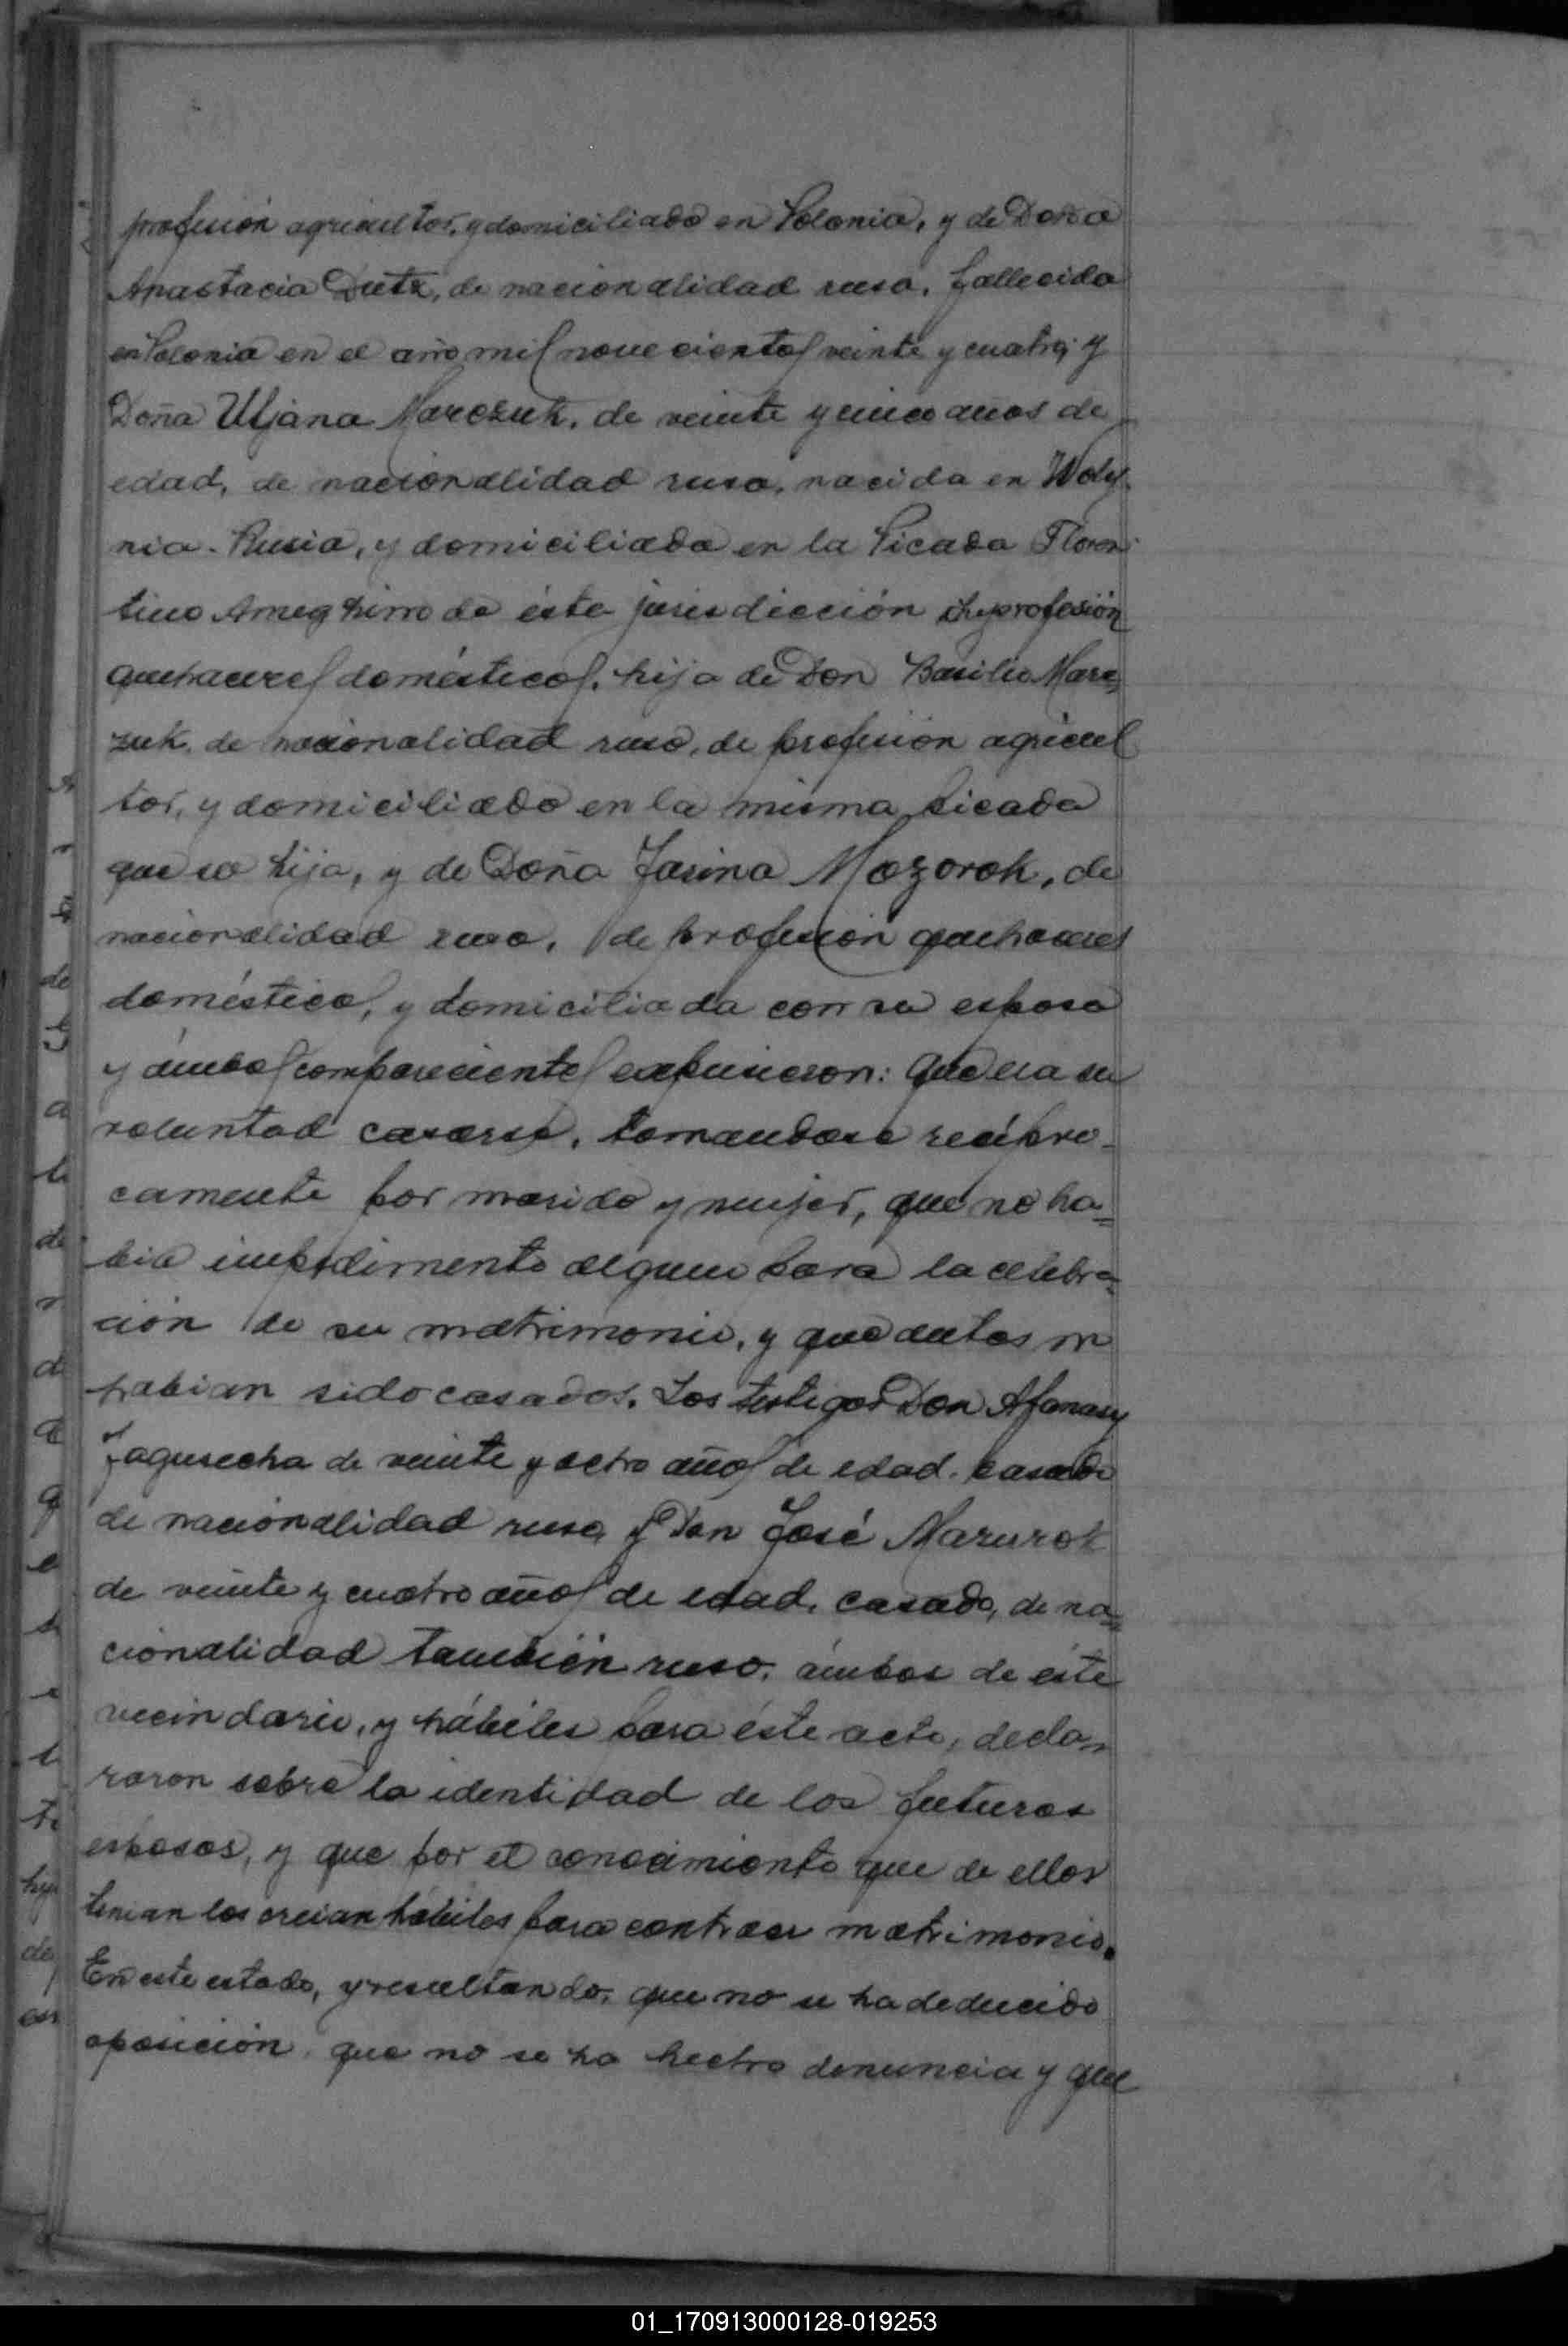 profesión agricultor, y domiciliado en Polonia, y de Doña
Anastacia Dutz, de nacionalidad rusa, fallecida
en Polonia en el año mil novecientos veinte y cuatro; y
Doña Uljana Marczuk, de veinte y cinco años de
edad, de nacionalidad rusa, nacida en Woly-
nia. Rusia, y domiciliada en la Picada Floren-
tino Ameghino de ésta jurisdicción de profesión
quehaceres domésticos, hija de Don Basilio Marc-
zuk, de nacionalidad ruso, de profesión agricul
tor, y domiciliado en la misma picada
que su hija, y de Doña Jarina Mozorok, de
nacionalidad rusa, de profesión quehaceres
domésticos, y domiciliada con su esposo
y ámbos comparecientes expusieron: Que era su
voluntad casarse, tomandose recípro-
camente por marido y mujer, que no ha-
bia impedimento alguno para la celebra-
ción de su matrimonio, y que antes no
habian sido casados. Los testigos Don Afanasy
Jagusecha de veinte y ocho años de edad, casado
de nacionalidad ruso, y Don José Mazurok
de veinte y cuatro años de edad, casado, de na-
cionalidad también ruso, ámbos de éste
vecindario, y hábiles para éste acto, decla-
raron sobre la identidad de los futuros
esposos, y que por el conocimiento que de ellos
tenian los creian hábiles para contraer matrimonio.
En este estado, y resultando, que no se ha deducido
oposición, que no se ha hecho denuncia y que
01_170913000128-019253